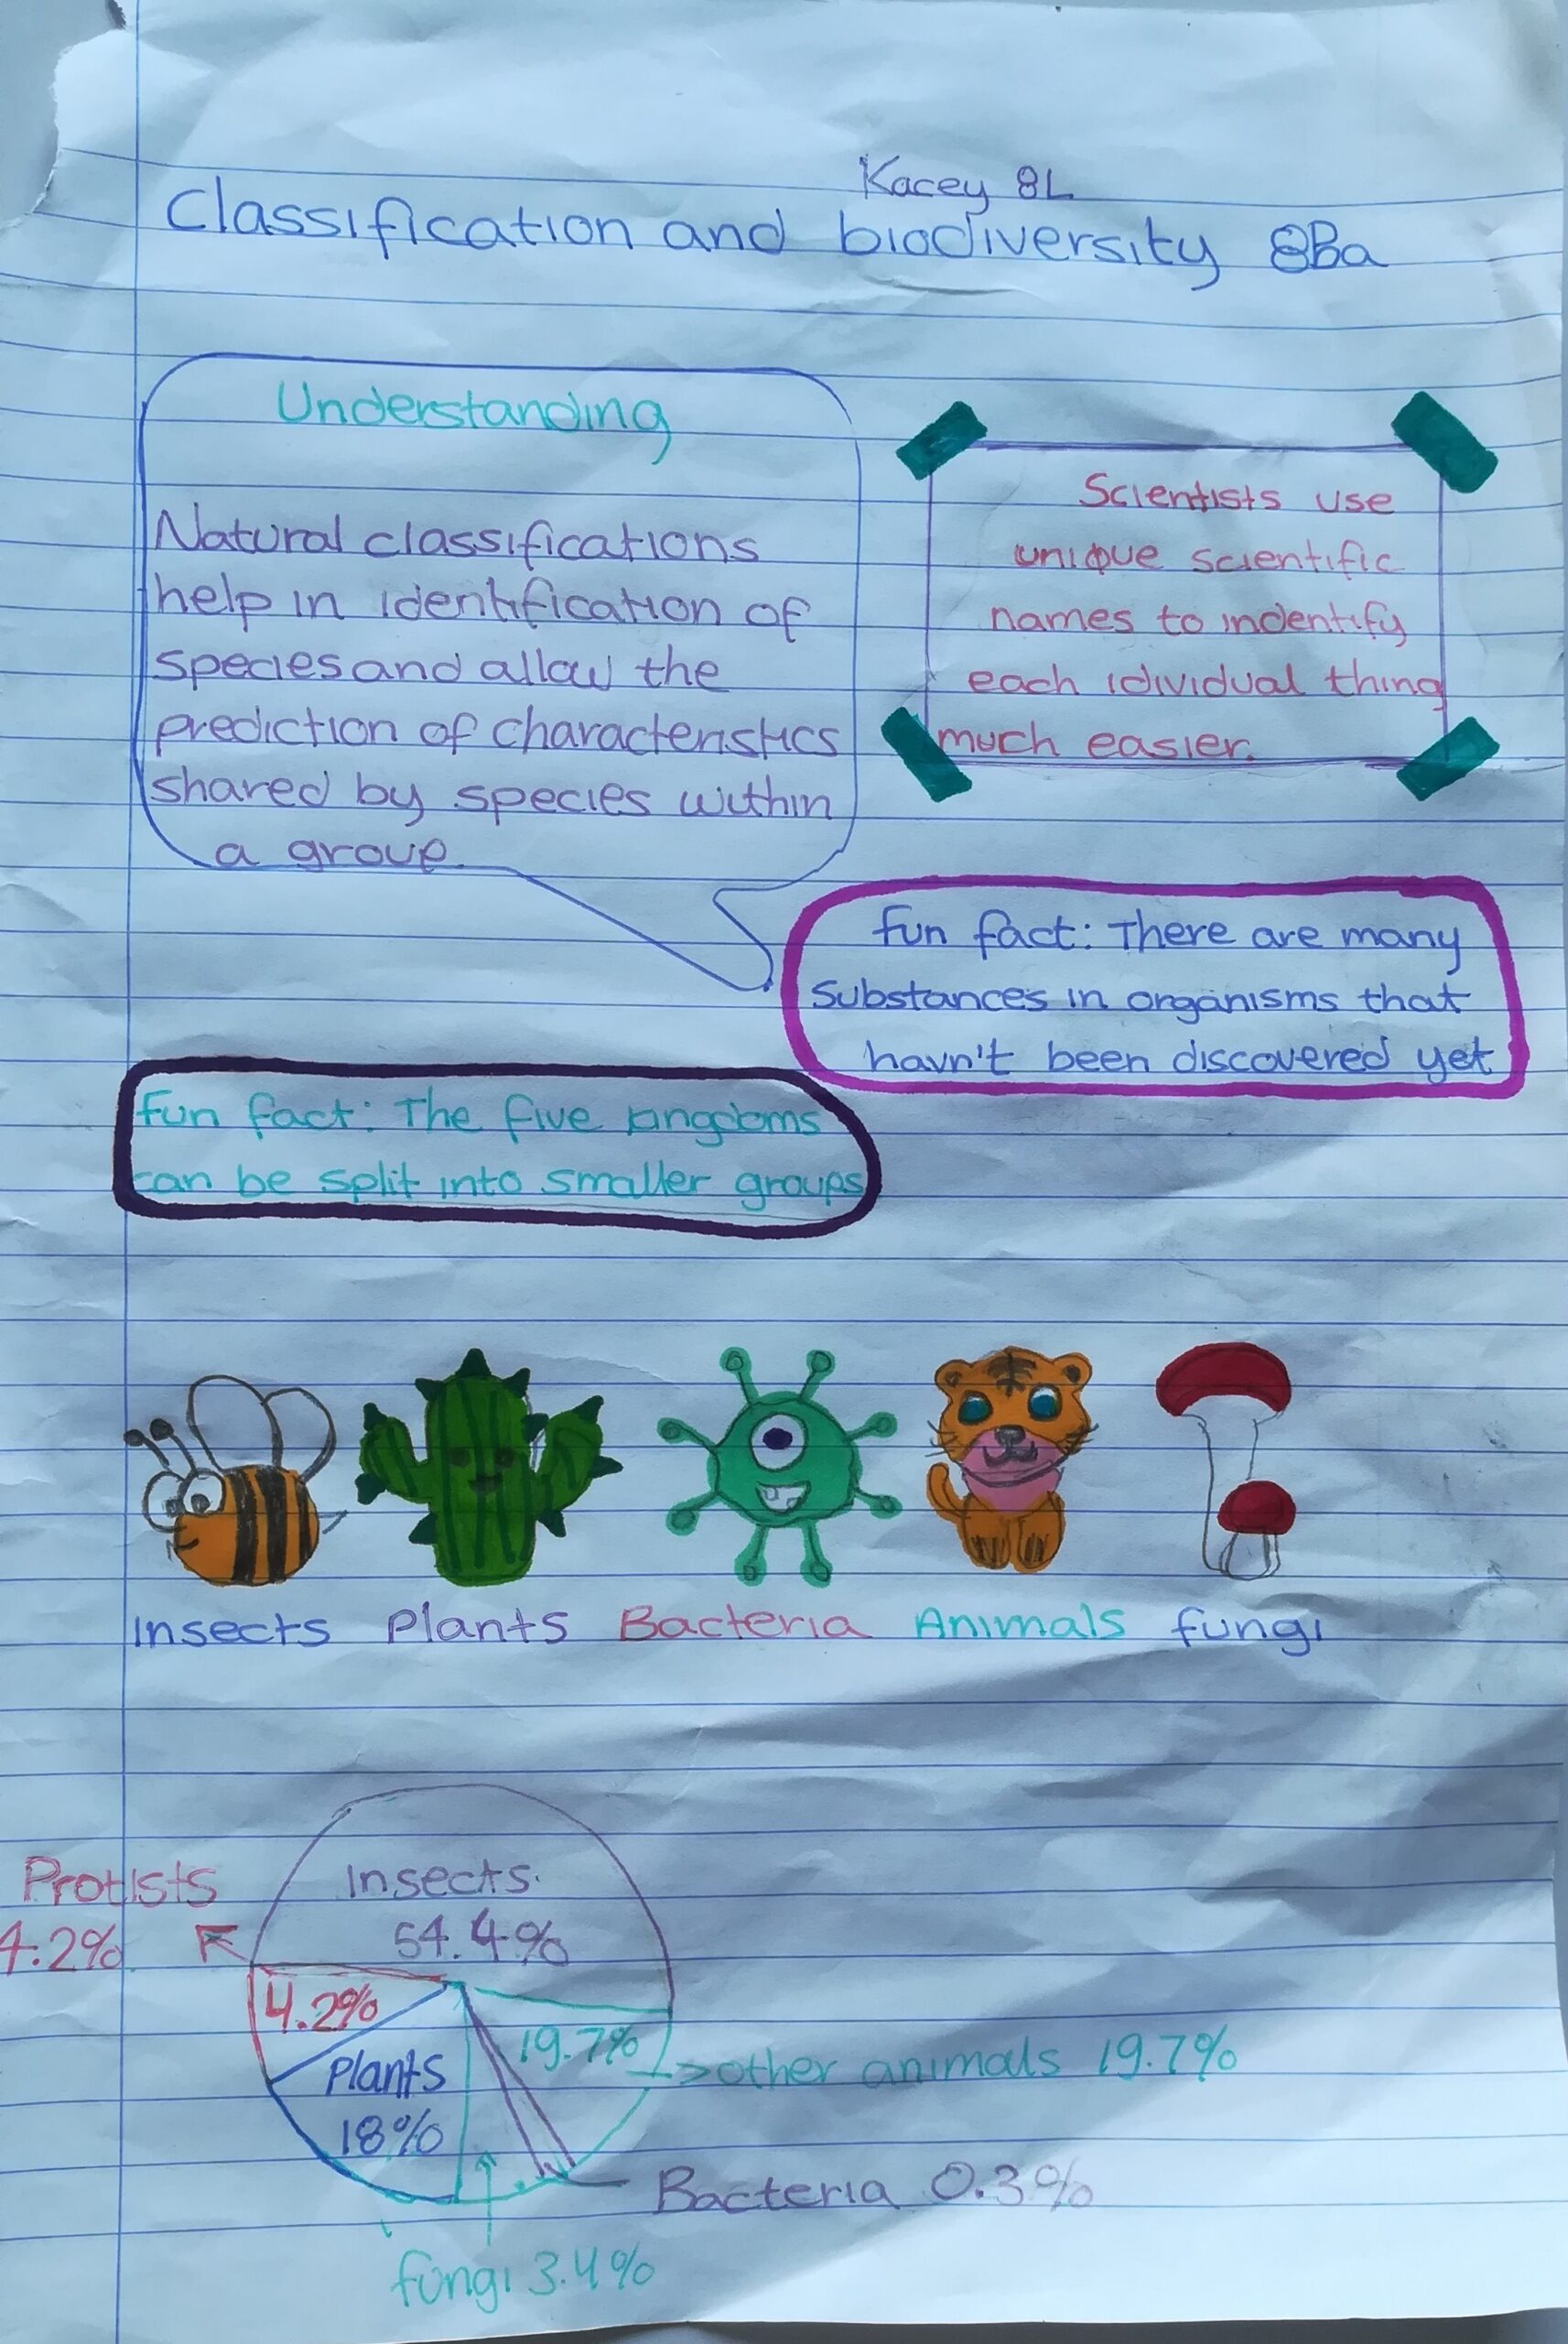 Kacey 8L
Classification and biodiversity 8Ba
Understanding
Natural classifications
help in identification of
species and allow the
prediction of characteristics
shared by species within
a group.
Scientists use
unique scientific
names to indentify
each idividual thing
much easier.
fun fact: There are many
substances in organisms that
havn't been discovered yet
fun fact: The five kingdoms
can be split into smaller groups
Insects Plants Bacteria Animals fungi
Protists
4.2%
Insects.
54.4%
4.2%
Plants
18%
19.7%
other animals 19.7%
Bacteria 0.3%
fungi 3.4%